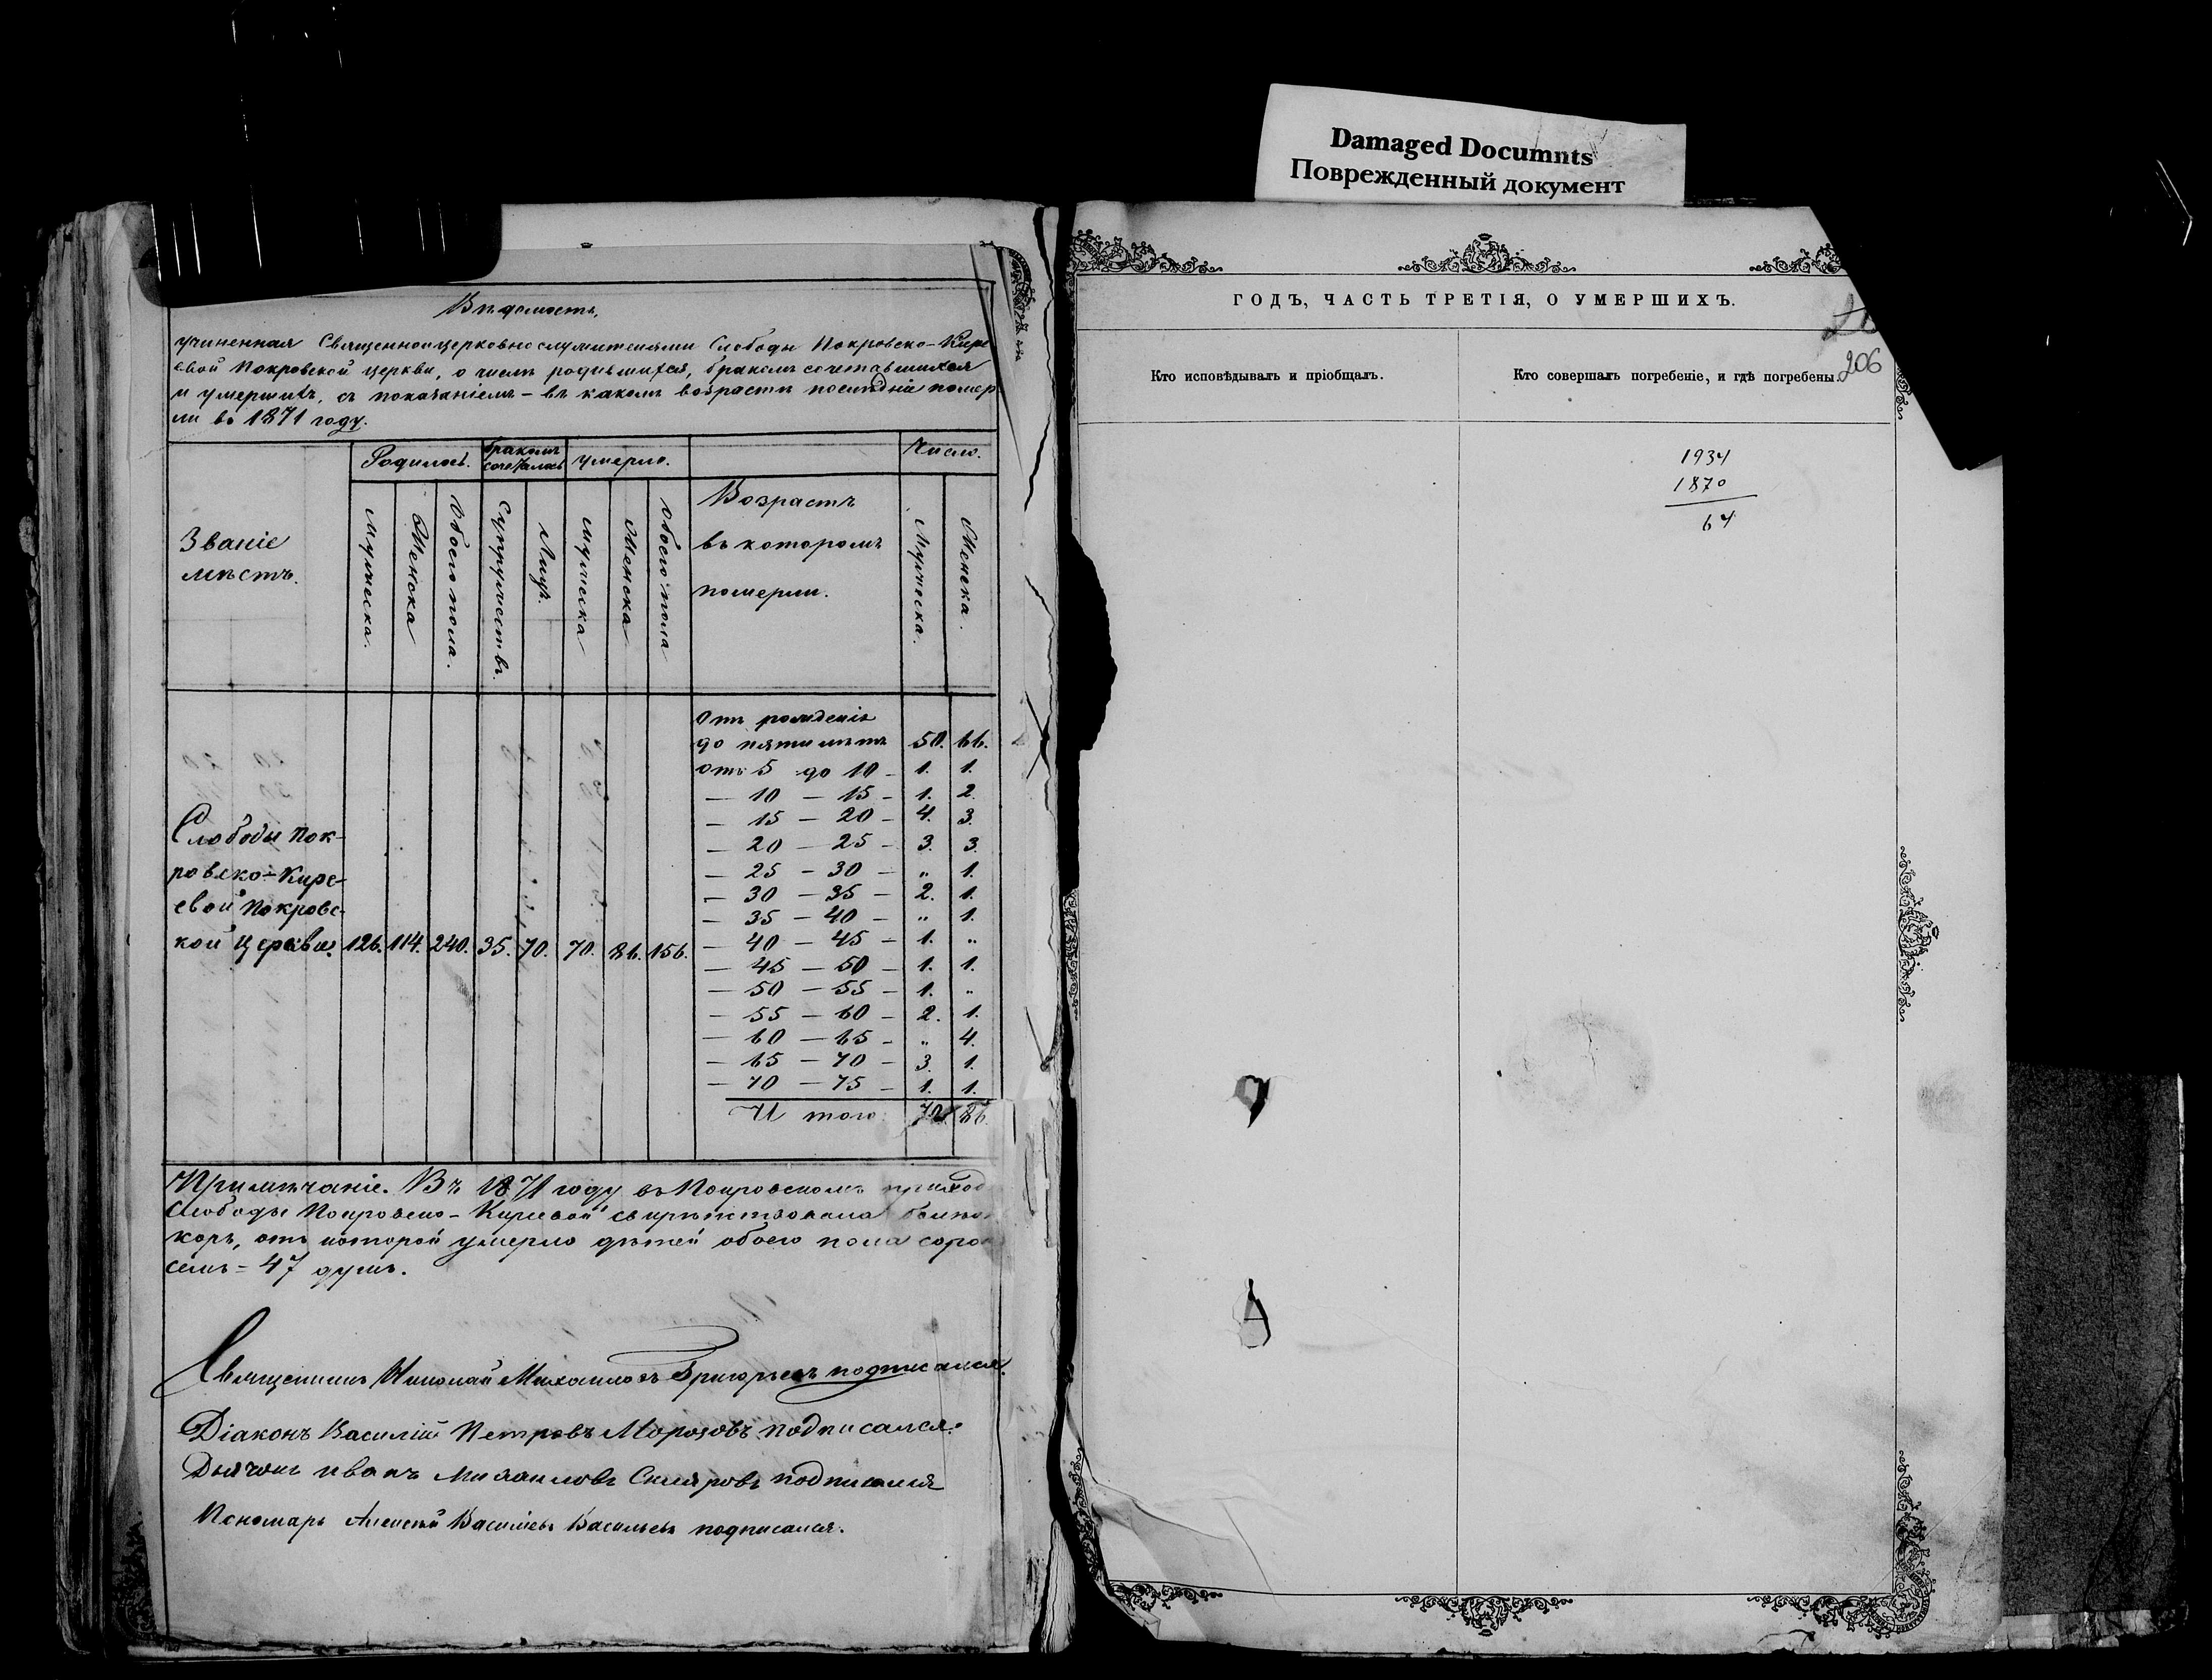 Damaged Documnts
Поврежденный документ
Вѣдомость,
учиненная Священноцерковнослужителями Слободы Покровско-Кире
евой Покровской церкви, о числѣ родившихся, бракомъ сочетавшихся
и умершихъ, съ показаніемъ – въ какомъ возрастѣ послѣдніе помер
ли въ 1871 году.
Званіе мѣстъ.
Родилось.
бракомъ сочеталось
умерло.
Число.
Мужеска. Женска Обоего пола. Супружествъ. Лицъ. Мужеска Женска Обоего пола
Возрастъ
въ которомъ
померли.
Мужеска. Женска.
Отъ рожденія
до пяти лѣтъ 50. 66.
отъ 5 до 10 – 1. 1.
– 10 – 15 – 1. 2.
– 15 – 20 – 4. 3.
– 20 – 25 – 3. 3.
– 25 – 30 – „ 1.
– 30 – 35 – 2. 1.
– 35 – 40 – „ 1.
– 40 – 45 – 1. „
– 45 – 50 – 1. 1.
– 50 – 55 – 1. „
– 55 – 60 – 2. 1.
– 60 – 65 – „ 4.
– 65 – 70 – 3. 1.
– 70 – 75 – 1. 1.
И того: 70 86.
Слободы Пок-
ровско-Кире-
евой Покровс-
кой Церкви. 126. 114. 240. 35. 70. 70. 86. 156.
Примѣчаніе. Въ 1871 году въ Покровскомъ приход
Слободы Покровско-Киреевой свирѣпствовала
корь, отъ которой умерло дѣтей обоего пола соро
семь = 47 душъ.
Священникъ Николай Михаиловъ Григорьевъ подписался.
Діаконъ Василій Петровъ Морозовъ подписался.
Дьячокъ Иванъ Михаиловъ подписался
Пономарь Алексѣй Васильевъ Васильевъ подписался.
ГОДЪ, ЧАСТЬ ТРЕТІЯ, О УМЕРШИХЪ.
206
Кто исповѣдывалъ и пріобщалъ.
Кто совершалъ погребеніе, и гдѣ погребены.
1934
1870
64